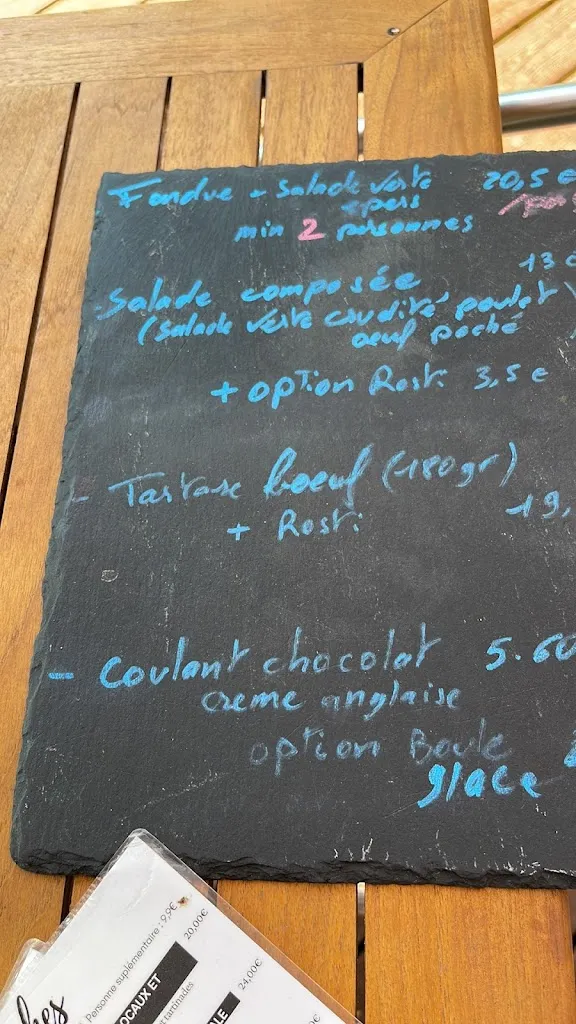 Fondue - Salade verte 20,5 €
epers
min 2 personnes
- Salade composée 13 €
(Salade verte crudité poulet
oeuf poché
+ option Rosti 3,5 €
- Tartare boeuf (180gr)
+ Rosti 19,
- Coulant chocolat 5.60
creme anglaise
option Boule
glace
Personne suplémentaire : 9,9€
20,00€
OCAUX ET
t tartinades
24,00€
LE
00€